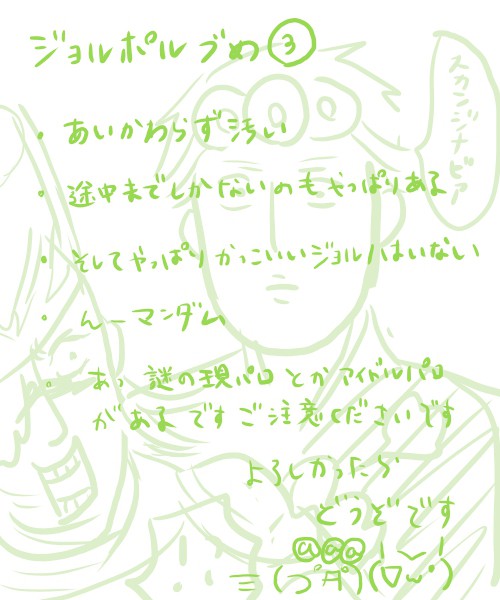 ジョルポルつめ③
スカンジナビアー
・あいかわらず汚い
・途中までしかないのもやっぱりある
・そしてやっぱりかっこいいジョルノはいない
・んーマンダム
・あっ 謎の現パロとかアイドルパロ
があるですご注意くださいです
よろしかったら
どうぞです